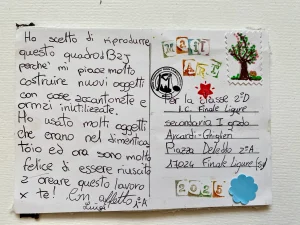 Ho scelto di riprodurre
questo quadro B2J
perché mi piace molto
costruire nuovi oggetti
con cose accantonate e
ormai inutilizzate.
Ho usato molti oggetti
che erano nel dimentica
toio ed ora sono molto
felice di essere riuscita
a creare questo lavoro
x te! Con affetto
Luigi 2ªA
MAIL
ART
Per la classe 2ªD
I.C. Finale Ligure
secondaria I grado
Aycardi-Ghiglieri
Piazza Deledo 2ª
17024 Finale Ligure (SV)
2025